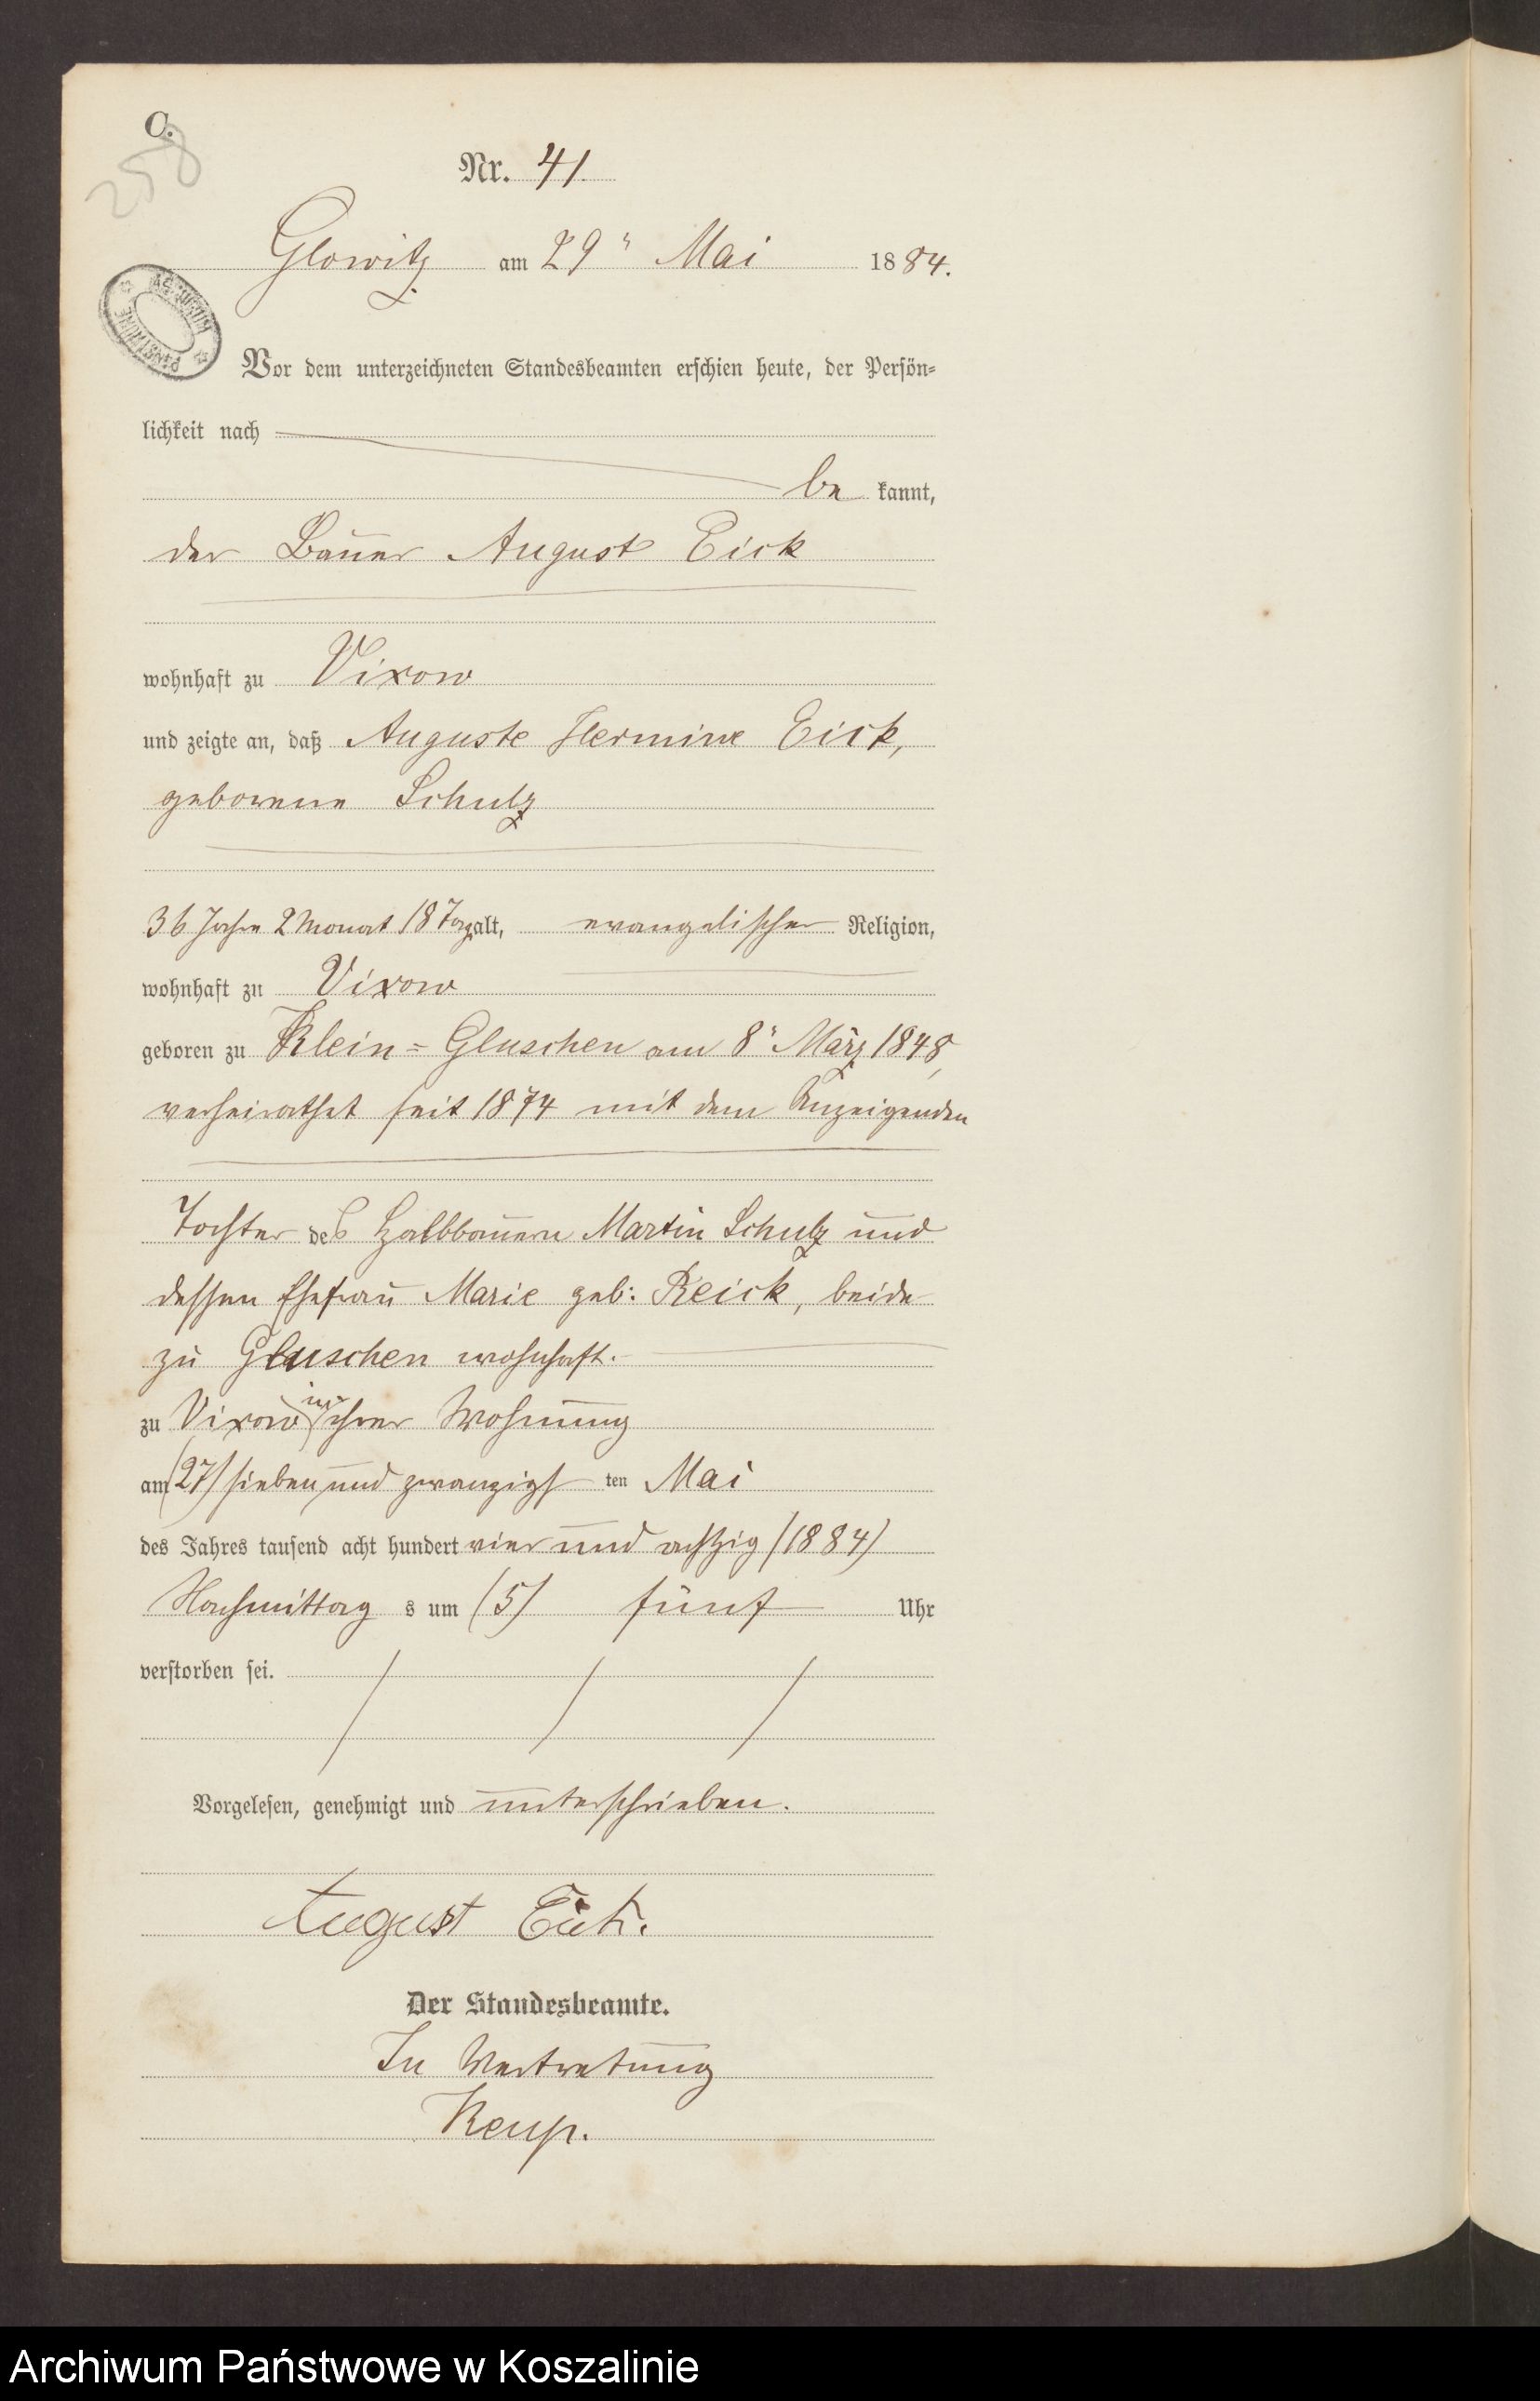 C.
258
Nr. 41.
Glowitz am 29" Mai 1884.
ARCHIWUM PAŃSTWOWE
Vor dem unterzeichneten Standesbeamten erschien heute, der Persön=
lichkeit nach
be kannt,
der Bauer August Eick
wohnhaft zu Vixow
und zeigte an, daß Auguste Hermine Eick,
geborene Schulz
36 Jahre 2 Monat 18 Tag alt, evangelischer Religion,
wohnhaft zu Vixow
geboren zu Klein=Gluschen am 8" März 1848,
verheirathet seit 1874 mit dem Anzeigenden
Tochter des Halbbauern Martin Schulz und
dessen Ehefrau Marie geb: Reick, beide
zu Gluschen wohnhaft.
zu Vixow in ihrer Wohnung
am (27) sieben und zwanzigsten Mai
des Jahres tausend acht hundert vier und achtzig (1884)
Nachmittags um (5) fünf Uhr
verstorben sei.
Vorgelesen, genehmigt und unterschrieben.
August Eick.
Der Standesbeamte.
In Vertretung
Archiwum Państwowe w Koszalinie